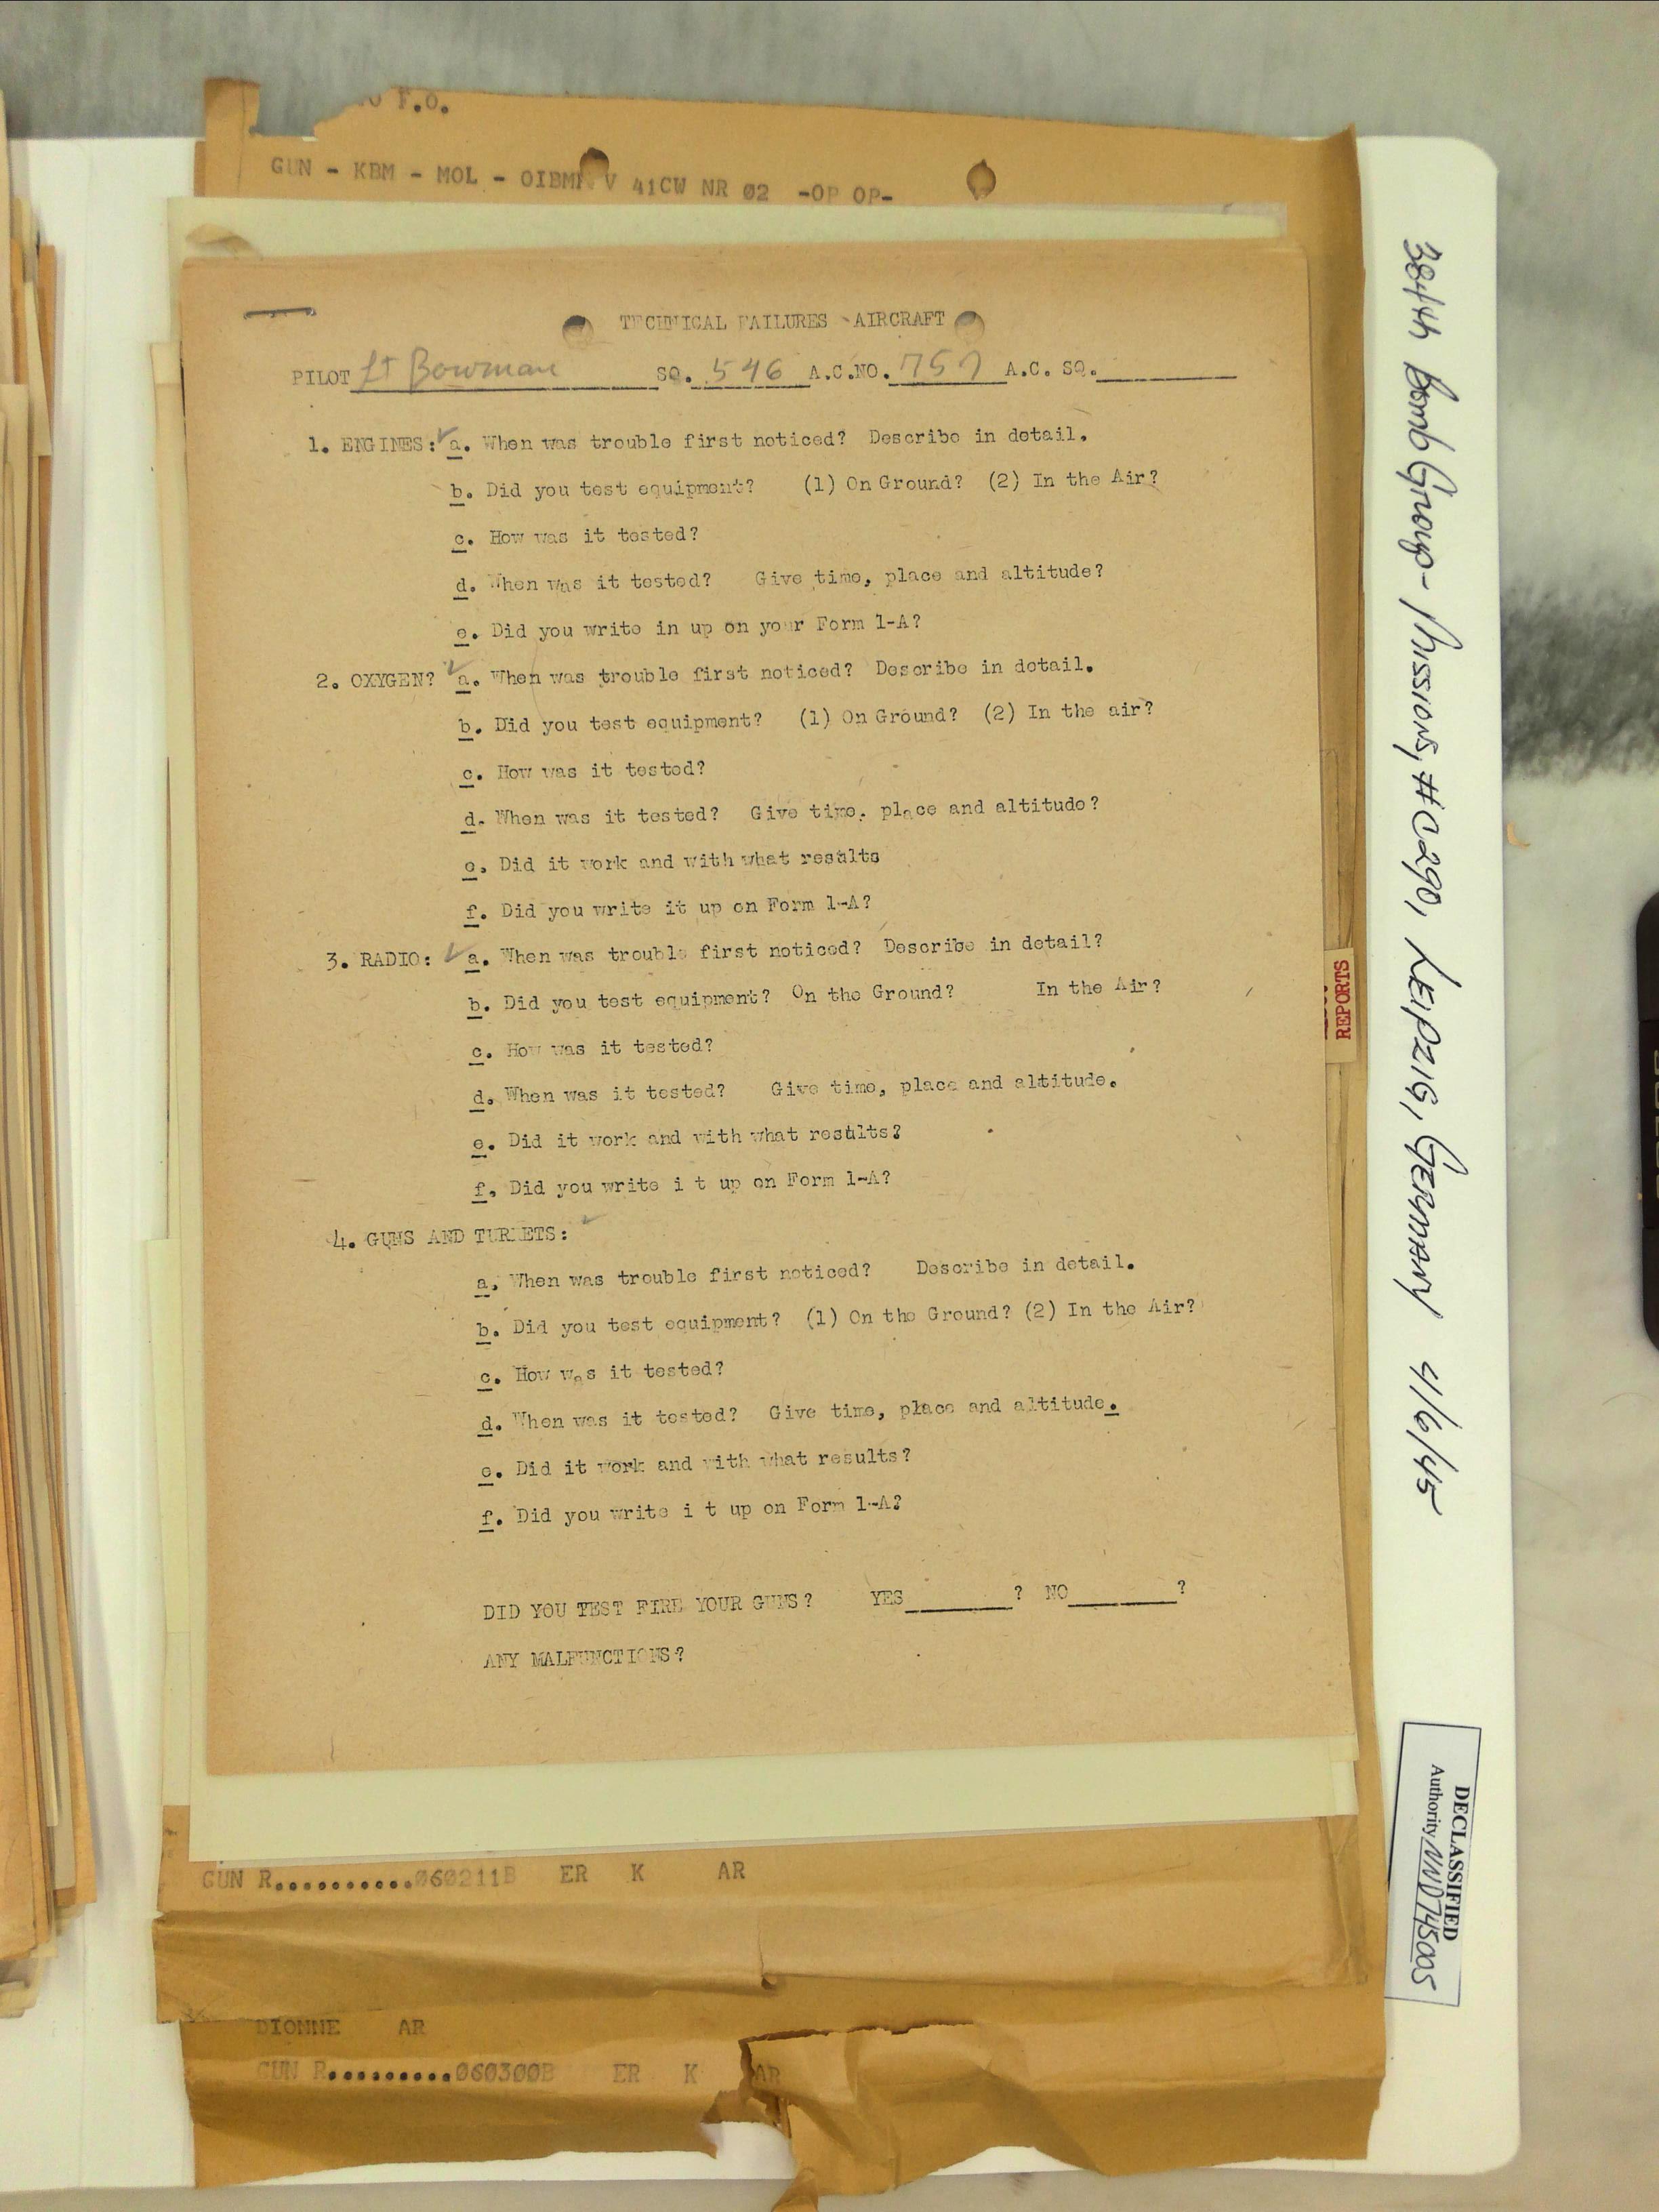 F.O.
GUN - KBM - MOL - V 41CW NR 02 -OP OP-
TECHNICAL FAILURES - AIRCRAFT
PILOT Lt Bowman SQ. 546 A.C.NO. 757 A.C. SQ.
1. ENGINES: a. When was trouble first noticed? Describe in detail.
b. Did you test equipment? (1) On Ground? (2) In the Air?
c. How was it tested?
d. When was it tested? Give time, place and altitude?
e. Did you write in up on your Form 1-A?
2. OXYGEN? a. When was trouble first noticed? Describe in detail.
b. Did you test equipment? (1) On Ground? (2) In the air?
c. How was it tested?
d. When was it tested? Give time, place and altitude?
e. Did it work and with what results
f. Did you write it up on Form 1-A?
3. RADIO: a. When was trouble first noticed? Describe in detail?
b. Did you test equipment? On the Ground? In the Air?
c. How was it tested?
d. When was it tested? Give time, place and altitude.
e. Did it work and with what results?
f. Did you write i t up on Form 1-A?
4. GUNS AND TURRETS:
a. When was trouble first noticed? Describe in detail.
b. Did you test equipment? (1) On the Ground? (2) In the Air?
c. How was it tested?
d. When was it tested? Give time, place and altitude.
e. Did it work and with what results?
f. Did you write i t up on Form 1-A?
DID YOU TEST FIRE YOUR GUNS? YES ? NO ?
ANY MALFUNCTIONS?
GUN R..........060211B ER K AR
DIONNE AR
GUN R..........060300B ER K AR
REPORTS
384th Bomb Group - Missions, #290, LEIPZIG, GERMANY 4/6/45
DECLASSIFIED
Authority NND745005